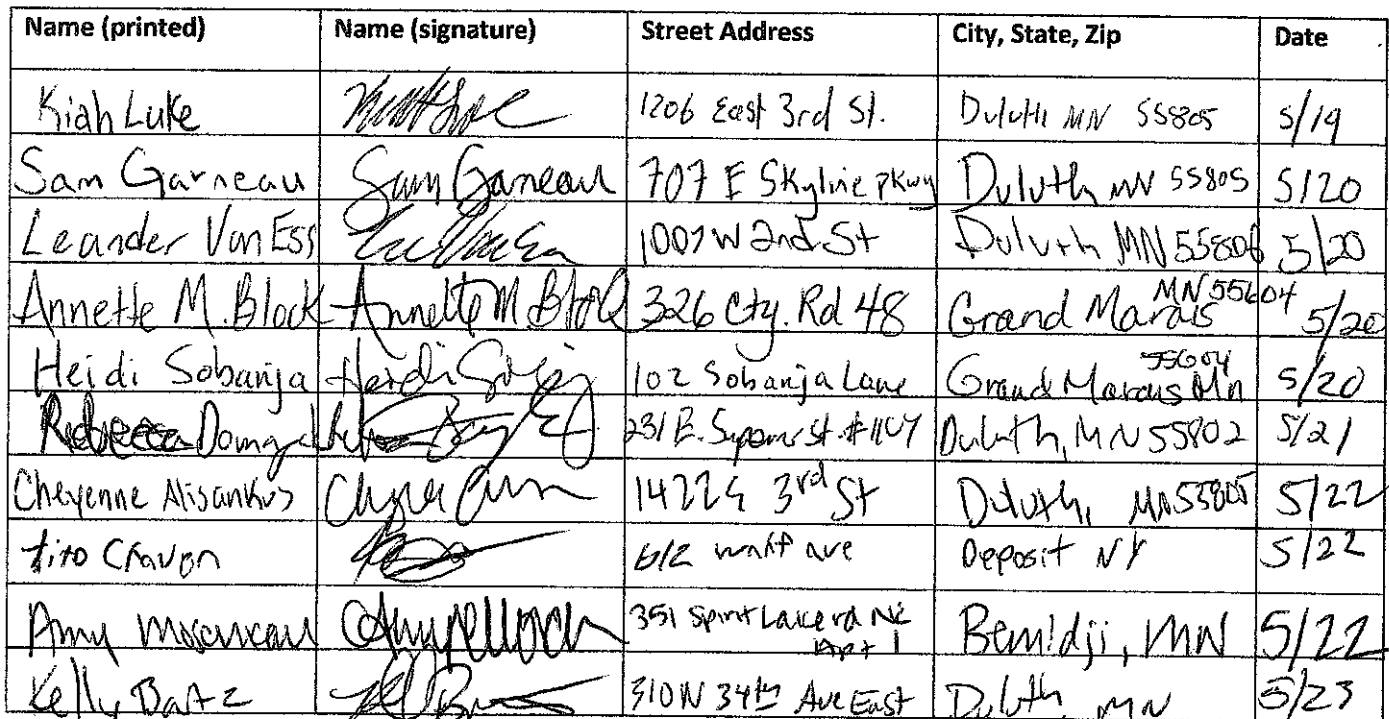 Name (printed) Name (signature) Street Address City, State, Zip Date
Kiah Luke 1206 East 3rd St. Duluth MN 55805 5/19
Sam Garneau Sam Garneau 707 E Skyline Pkwy Duluth MN 55805 5/20
Leander Van Ess 1007 W 2nd St Duluth MN 55806 5/20
Annette M. Block Annette M Block 326 Cty. Rd 48 Grand Marais MN 55604 5/20
Heidi Sobanja Heidi 102 Sobanja Lane Grand Marais Mn 55604 5/20
Rebecca 231 E. Superior St. #1107 Duluth, MN 55802 5/21
Cheyenne Alisankus 3rd St Duluth, MN 55805 5/22
Tito 612 ave Deposit NY 5/22
Amy 351 Spirt Lake rd NE Apt 1 Bemidji, MN 5/22
Kelly Bartz 310 N 34th Ave East Duluth MN 5/23